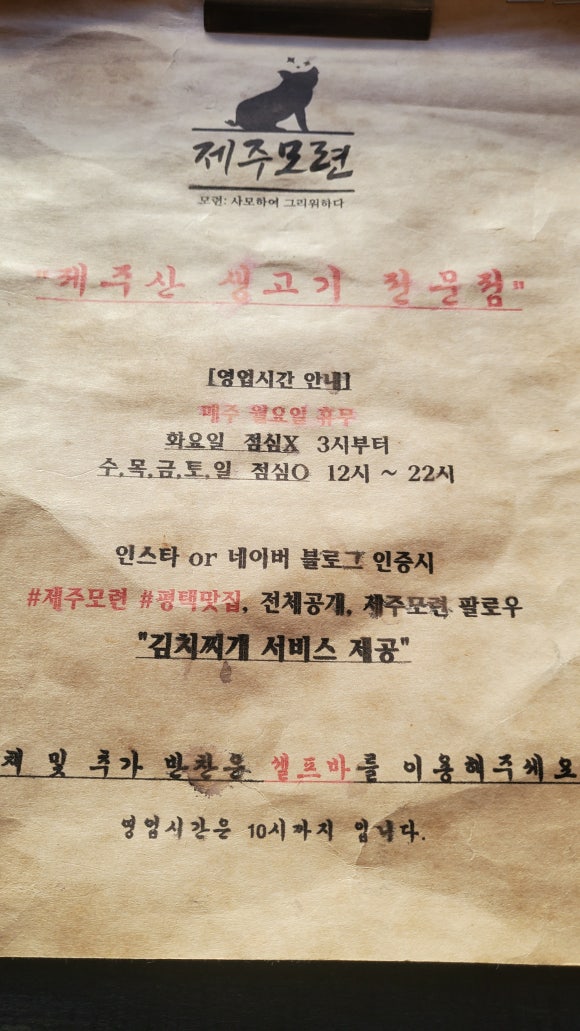 제주모련
모련: 사모하여 그리워하다
"제주산 생고기 전문점"
[영업시간 안내]
매주 월요일 휴무
화요일 점심X 3시부터
수,목,금,토,일 점심O 12시 ~ 22시
인스타 or 네이버 블로그 인증시
#제주모련 #평택맛집, 전체공개, 제주모련 팔로우
"김치찌개 서비스 제공"
및 추가 반찬은 셀프바를 이용해주세요
영업시간은 10시까지 입니다.